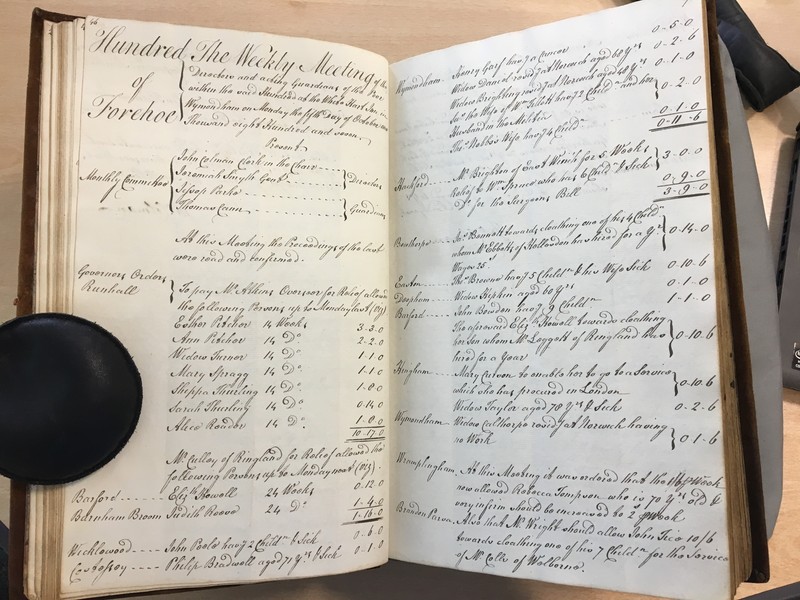 46
Hundred
of
Forehoe
The Weekly Meeting of the
Directors and acting Guardians of the Poor
within the said Hundred at the White Hart Inn in
Wymondham on Monday the fifth day of October One
Thousand eight Hundred and seven.
Present
Monthly Committee
John Colman Clerk in the Chair
Jeremiah Smyth Gent.
Jessop Parke
Thomas Cann
Directors
Guardians
At this Meeting the Proceedings of the last
were read and confirmed.
Governors Orders
Runhall
To pay Mr. Overseer for Relief allowed
the following Persons up to Monday last (Viz)
Esther Pitchor 14 Weeks 3-3-0
Ann Pitchor 14 Do. 2-2-0
Widow Turnor 14 Do. 1-1-0
Mary Spragg 14 Do. 1-1-0
Thurling 14 Do. 1-8-0
Sarah Thurling 14 Do. 0-14-0
Alice Reador 14 Do. 1-8-0
10-17-0
Mr. Culley of Ringland for Relief allowed the
following Persons up to Monday next (Viz).
Barford Elizth. Howell 24 Weeks 0-12-0
Barnham Broom Judith Reeve 24 Do. 1-4-0
1-16-0
Wicklewood John Poole has 2 Childn. & Sick 0-6-0
Costessey Philip Bradwell aged 71 Yrs. & Sick 0-1-0
Wymondham Henry Garf has a Cancer 0-5-0
Widow Daniel residg. at Norwich aged 68 Yrs 0-2-6
Widow Brightley residg. at Norwich aged 48 Yrs 0-1-0
the Wife of Wm. Ellett has 2 Childn. and her
Husband in the Militia 0-2-0
Thos. Nobbs Wife has 4 Childn. 0-1-0
0-11-6
Hackford Mr. Brighton of East Winch for 5 Weeks
Relief to Wm. Spruce who has 6 Childn. & Sick 3-0-0
Do. for the Surgeons Bill 0-9-0
3-9-0
Bowthorpe Jas. Bennett towards cloathing one of his 4 Childn
whom Mr. Ebbetts of Hellesdon has hired for a Yr.
Wages 25s 0-14-0
Easton Thos. Browne has 5 Childn. & his Wife Sick 0-10-6
Deopham Widow aged 60 Yrs 0-1-0
Barford John Bowdon has 9 Childn. 1-1-0
Elizth. Howell towards cloathing
her Son whom Mr. Leggett of Ringland has
hired for a Year 0-10-6
Hingham Mary to enable her to go to a Service
which she has procured in London 0-10-6
Widow Taylor aged 78 Yrs. & Sick 0-2-6
Wymondham Widow Calthorpe residg. at Norwich having
no Work 0-1-6
Wramplingham At this Meeting it was ordered that the 1/6 p Week
now allowed Rebecca Tompson who is 70 Yrs. old &
very infirm should be increased to 2s. p Week
Brandon Parva Also that Mr. Wright should allow John 10/6
towards cloathing one of his 7 Childn. for the Service
of Mr. Colls of Welborne.